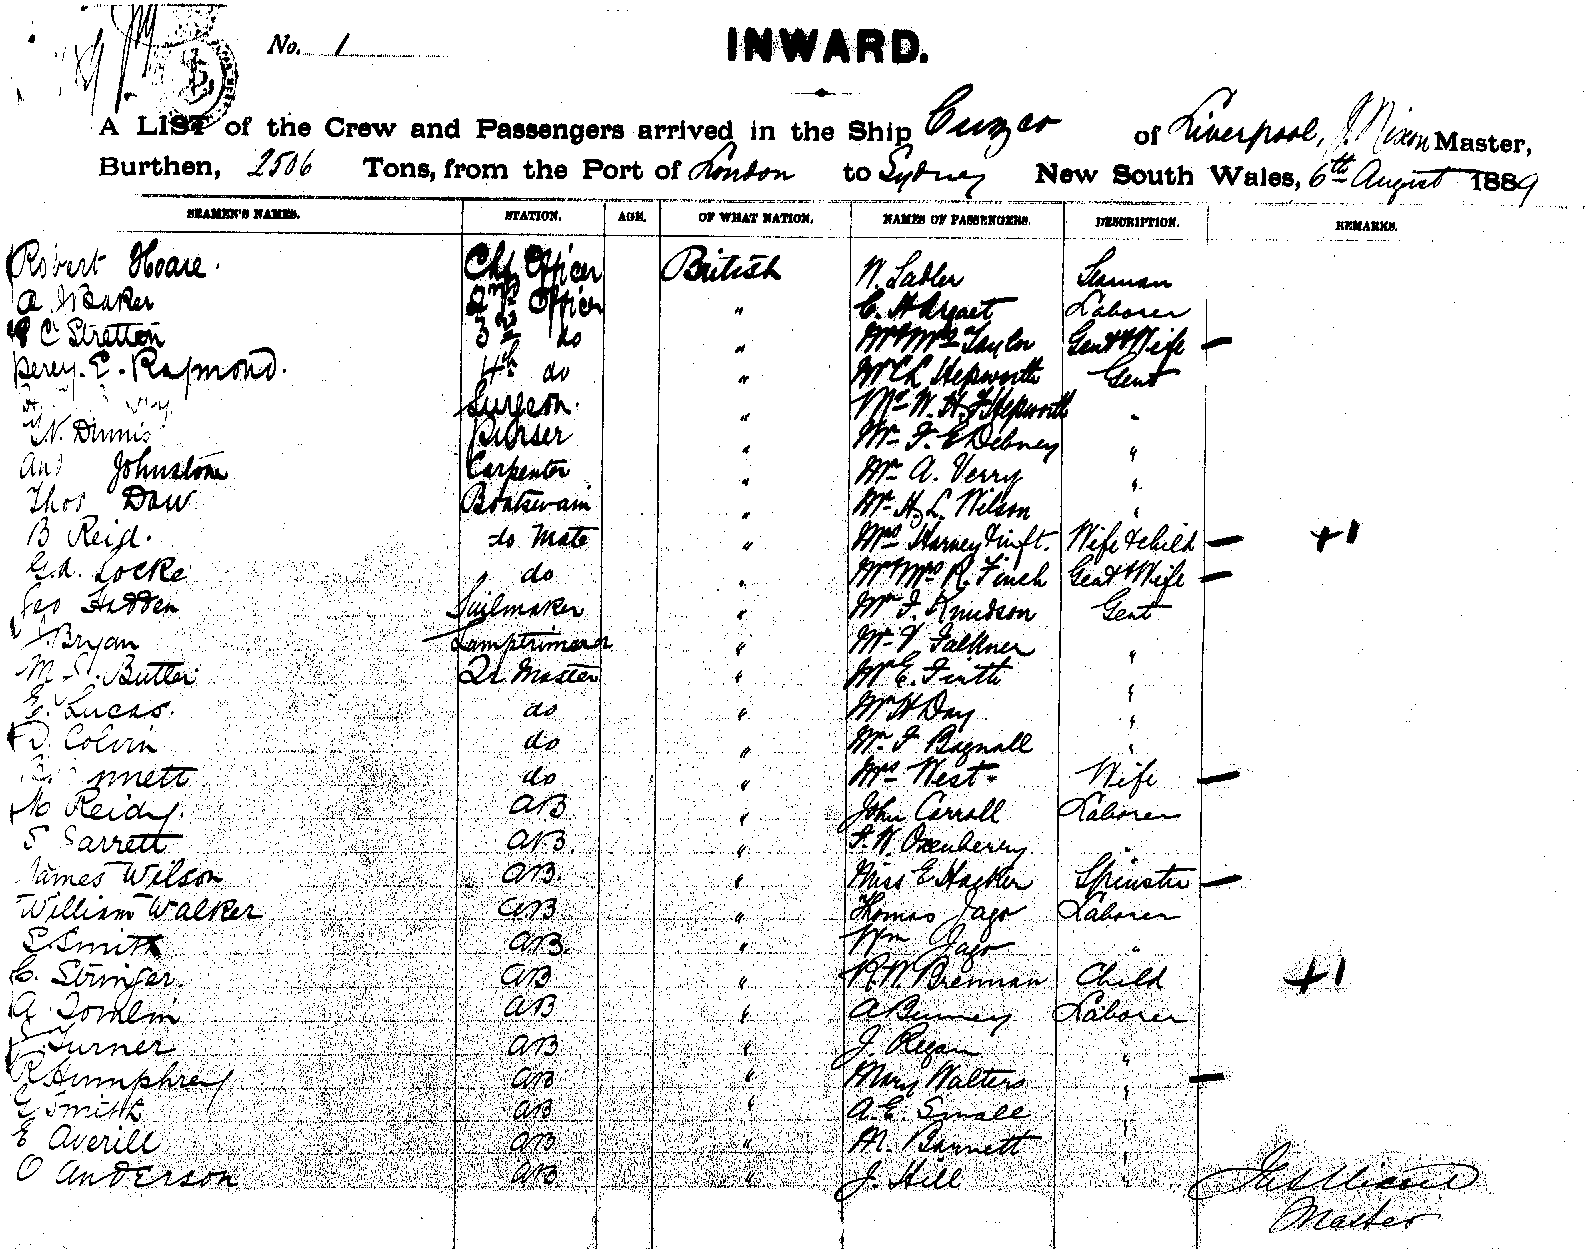 No. 1
INWARD.
A LIST of the Crew and Passengers arrived in the Ship Cuzco of Liverpool, J. Nixon Master,
Burthen, 2506 Tons, from the Port of London to Sydney New South Wales, 6th August 1889
SEAMEN'S NAMES. STATION. AGE. OF WHAT NATION. NAMES OF PASSENGERS. DESCRIPTION. REMARKS.
Robert Hoare. Chf Officer British W. Sadler Seaman
A. J. Baker 2nd Officer " C. H. Laborer
C Stretton 3rd do " Mr & Mrs Taylor Gent & Wife —
Percy. E. Raymond. 4th do " Mr C L Hepworth Gent
Surgeon. " Mr W. H. F Hepworth "
N. Dennis Purser " Mr F. E Debney "
And Johnstone Carpenter " Mr A. Verry "
Thos Daw Boatswain " Mr H. L. Wilson "
B Reid. do Mate " Mrs Harvey & inft. Wife & child — +1
G. A. Locke do " Mr & Mrs R. Finch Gent & Wife —
Geo Hadden Sailmaker " Mr F. Knudson Gent
Bryan Lamptrimmer " Mr V Falkner "
M. Butler Qr Master " Mr E. Firth "
E. Lucas. do " Mr H Day "
D. Colvin do " Mr F Bagnall "
do " Mrs West. Wife —
M Reidy. AB " John Carroll Laborer
S Garrett AB. " F. W. Oxenberry
James Wilson AB. " Miss E Hacker Spinster —
William Walker AB " Thomas Jago Laborer
E Smith AB. " Wm Jago "
C. Stringer. AB " R. W. Brennan Child +1
A Tomlin AB " A Burney Laborer
Turner AB " J. Regan "
R Humphrey AB " Mary Walters " —
G Smith AB " A. E. Small "
E Averill AB " M. Barnett "
O Anderson AB " J. Hill "
Master